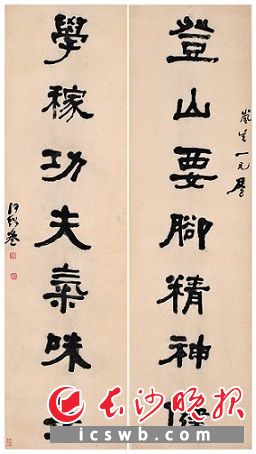 登山要腳精神
學稼功夫氣味
何紹基
长沙晚报
icswb.com